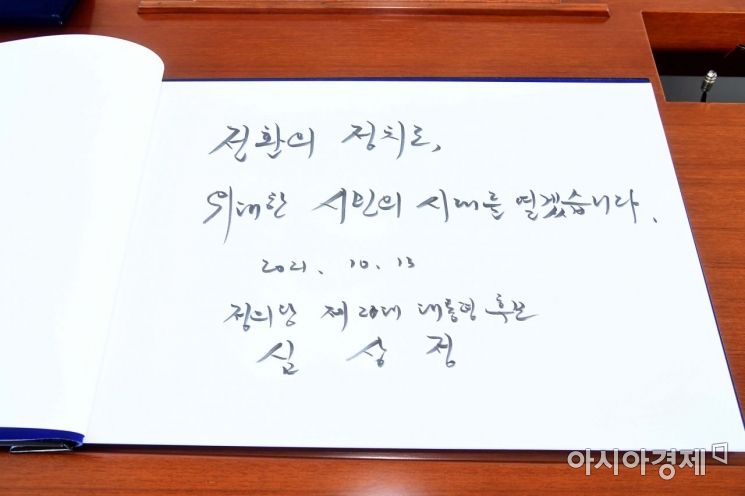 전환의 정치로,
위대한 시민의 시대를 열겠습니다.
2021. 10. 13
정의당 제20대 대통령 후보
심 상 정
아시아경제